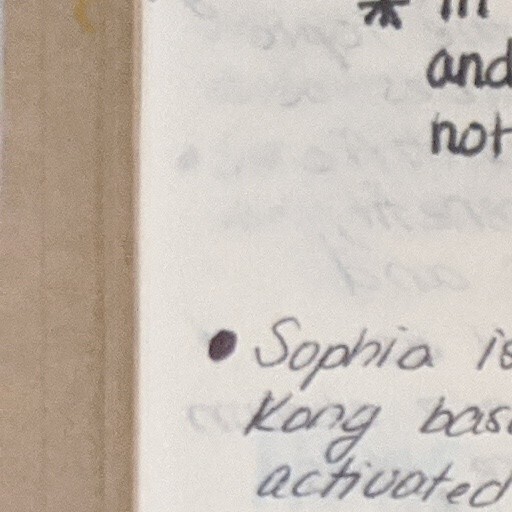 * in
and
not
• Sophia is
Kong bas
activated